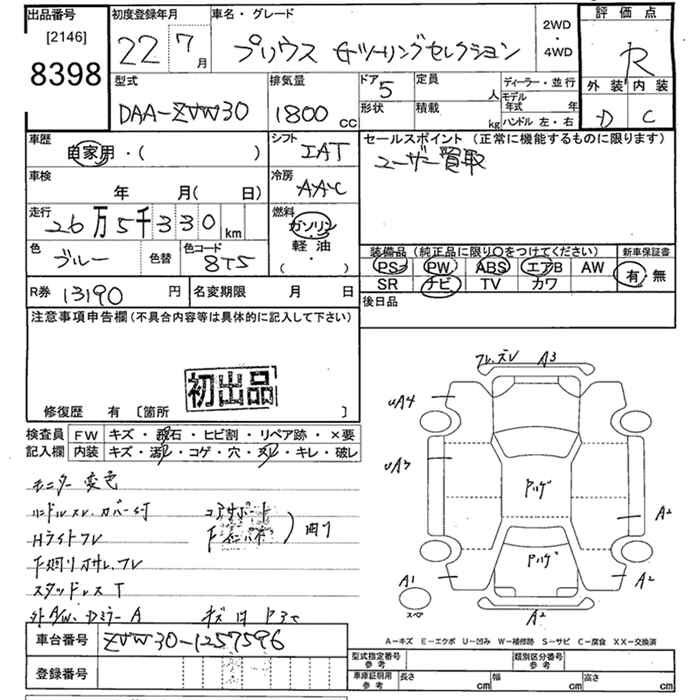 出品番号 初度登録年月 車名・グレード 2WD・4WD 評価点
[2146]
8398
22 7月 プリウス Gツーリングセレクション R
外装 内装
D C
型式 排気量 ドア 5 定員 人 ディーラー・並行
DAA-ZVW30 1800cc 形状 積載 kg モデル年式 年
ハンドル 左・右
車歴 シフト セールスポイント (正常に機能するものに限ります)
自家用・( ) IAT ユーザー買取
車検 冷房
年 月( 日) AAC
走行 燃料
26万5千330km ガソリン・軽油・( )
色 ブルー 色替 色コード 8T5
装備品(純正品に限り○をつけてください) 新車保証書
PS PW ABS エアB AW 有・無
SR ナビ TV カワ
R券 13190円 名変期限 月 日 後日品
注意事項申告欄(不具合内容等は具体的に記入して下さい)
初出品
修復歴 有 [箇所 ]
検査員 FW キズ・飛石・ヒビ割・リペア跡・×要
記入欄 内装 キズ・汚レ・コゲ・穴・スレ・キレ・破レ
モニター変色
ハンドルスレ、カバー付
コアサポート
Hライトフレ
下廻りサビ、フレ
スタッドレスT
A3
uA4
uA3
アリゲ
A2
アリゲ
A1
A2
スペア
A2
A-キズ E-エクボ U-凹み W-補修跡 S-サビ C-腐食 XX-交換済
車台番号 ZVW30-1257596
登録番号
型式指定番号 参考 類別区分番号 参考
車庫証明用 参考 長さ cm 幅 cm 高さ cm